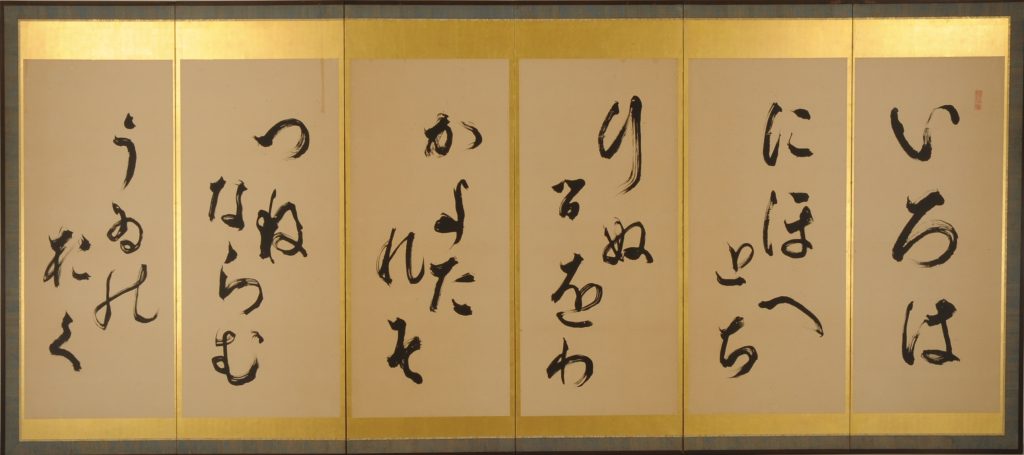 いろは
にほへ
とち
りぬ
るをわ
かよた
れそ
つね
ならむ
うゐの
おく